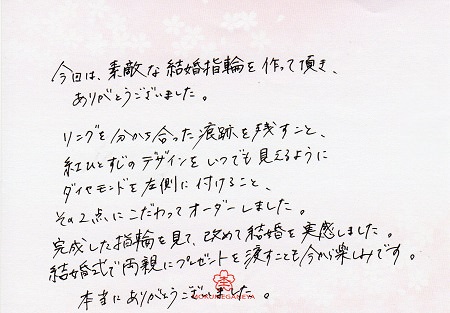 今日は、素敵な結婚指輪を作って頂き、
ありがとうございました。
リングを分かち合った痕跡を残すこと、
紅ひとすじのデザインをいつでも見えるように
ダイヤモンドを左側に付けること、
その2点にこだわってオーダーしました。
完成した指輪を見て、改めて結婚を実感しました。
結婚式で両親にプレゼントを渡すことも今から楽しみです。
本当にありがとうございました。
MOKUMEGANEYA